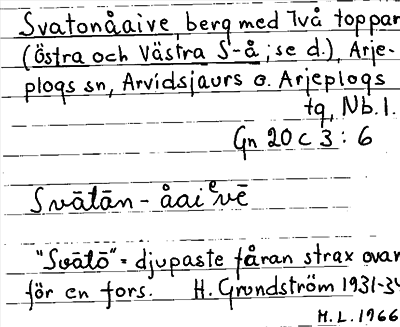 Svatonåaive, berg med två toppar
(Östra och Västra S-å; se d.), Arje-
plogs sn, Arvidsjaurs o. Arjeplogs
tg, Nb. l.
Gn 20 C 3 : 6
Svātān - åaiᵉvē
"Svātō" = djupaste fåran strax ovan
för en fors. H. Grundström 1931-34
H.L. 1966